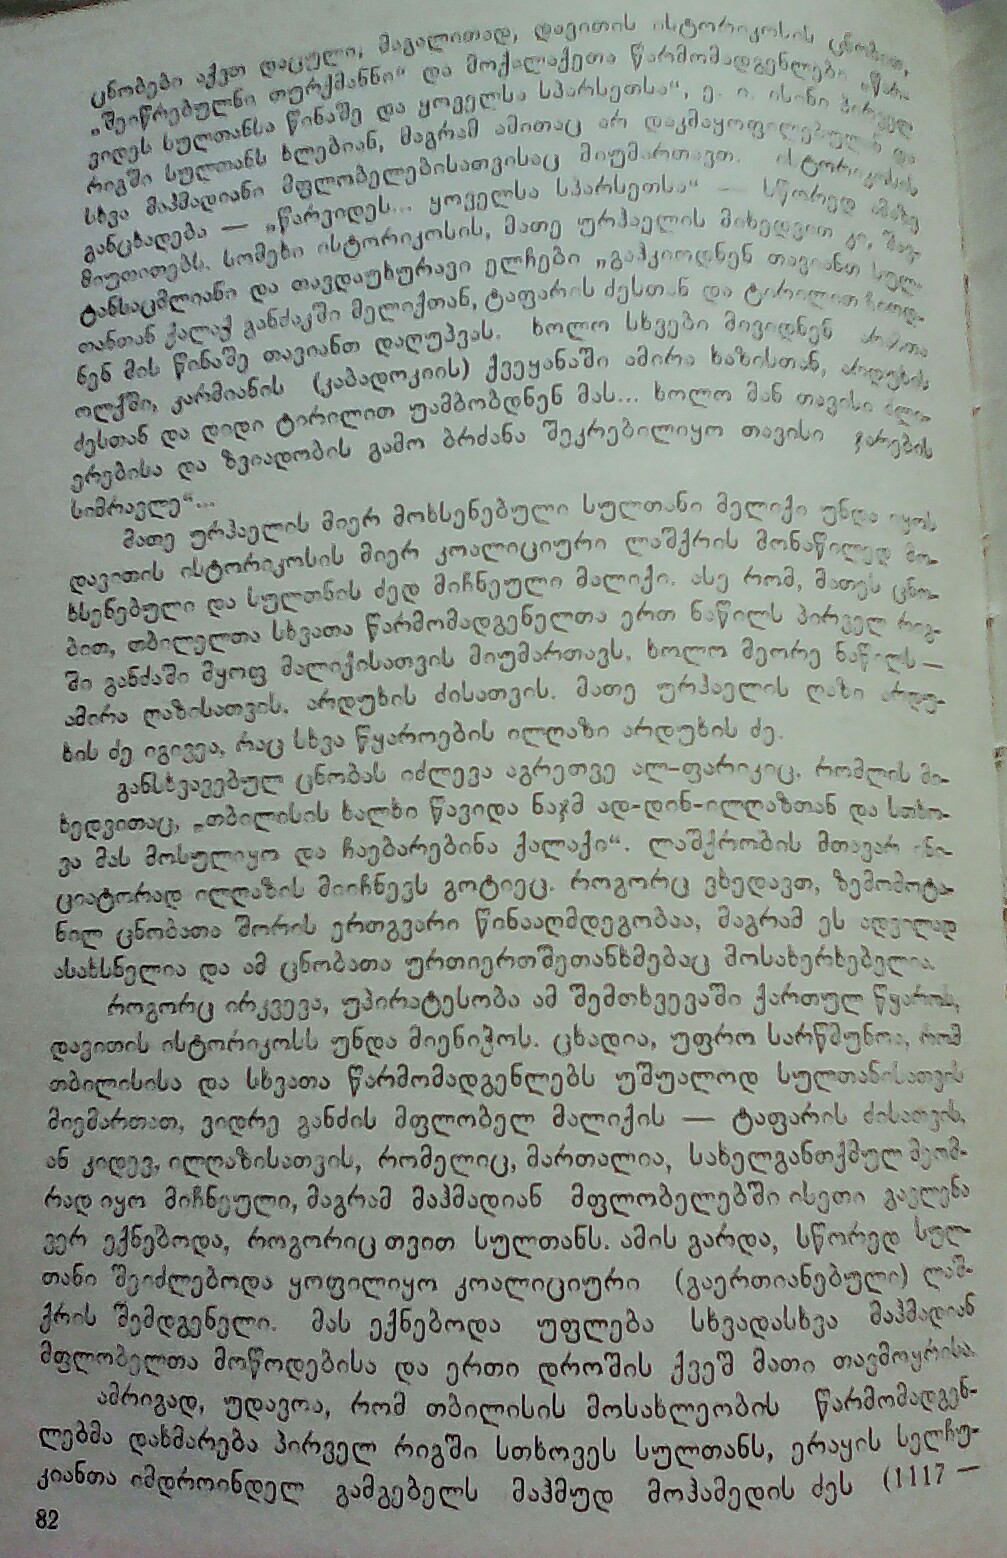 ცნობები აქვთ დაცული, მაგალითად, დავითის ისტორიკოსის ცნობით,
„შეიწრებულნი თურქმანნი“ და მოქალაქეთა წარმომადგენლები „წარ-
ვიდეს სულთანსა წინაშე და ყოველსა სპარსეთსა“, ე. ი. ისინი პირველ
რიგში სულთანს ხლებიან, მაგრამ ამითაც არ დაკმაყოფილებულან და
სხვა მაჰმადიანი მფლობელებისათვისაც მიუმართავთ. ისტორიკოსის
განცხადება — „წარვიდეს... ყოველსა სპარსეთსა“ — სწორედ ამაზე
მიუთითებს. სომეხი ისტორიკოსის, მათე ურჰაელის მიხედვით კი, შავ-
ტანსაცმლიანი და თავდაუხურავი ელჩები „გაჰკიოდნენ თავიანთ სულ-
თანთან ქალაქ განძაკში მელიქთან, ტაფარის ძესთან და ტირილით
ნენ მის წინაშე თავიანთ დაღუპვას. ხოლო სხვები მივიდნენ
ოლქში, კარმიანის (კაბადოკიის) ქვეყანაში ამირა ხაზისთან, არდუხის
ძესთან და დიდი ტირილით უამბობდნენ მას... ხოლო მან თავისი ძლი-
ერებისა და ზვიადობის გამო ბრძანა შეკრებილიყო თავისი ჯარების
სიმრავლე“...
მათე ურჰაელის მიერ მოხსენებული სულთანი მელიქი უნდა იყოს
დავითის ისტორიკოსის მიერ კოალიციური ლაშქრის მონაწილედ მო-
ხსენებული და სულთნის ძედ მიჩნეული მალიქი. ასე რომ, მათეს ცნო-
ბით, თბილელთა სხვათა წარმომადგენელთა ერთ ნაწილს პირველ რიგ-
ში განძაში მყოფ მალიქისათვის მიუმართავს, ხოლო მეორე ნაწილს —
ამირა ღაზისათვის, არდუხის ძისათვის. მათე ურჰაელის ღაზი არდუ-
ხის ძე იგივეა, რაც სხვა წყაროების ილღაზი არდუხის ძე.
განსხვავებულ ცნობას იძლევა აგრეთვე ალ-ფარიკიც, რომლის მი-
ხედვითაც, „თბილისის ხალხი წავიდა ნაჯმ ად-დინ-ილღაზთან და სთხო-
ვა მას მოსულიყო და ჩაებარებინა ქალაქი“. ლაშქრობის მთავარ ინი-
ციატორად ილღაზის მიიჩნევს გოტიეც. როგორც ვხედავთ, ზემომოტა-
ნილ ცნობათა შორის ერთგვარი წინააღმდეგობაა, მაგრამ ეს ადვილად
ასახსნელია და ამ ცნობათა ურთიერთშეთანხმებაც მოსახერხებელია.
როგორც ირკვევა, უპირატესობა ამ შემთხვევაში ქართულ წყაროს,
დავითის ისტორიკოსს უნდა მიენიჭოს. ცხადია, უფრო სარწმუნოა, რომ
თბილისისა და სხვათა წარმომადგენლებს უშუალოდ სულთანისათვის
მიემართათ, ვიდრე განძის მფლობელ მალიქის — ტაფარის ძისათვის,
ან კიდევ, ილღაზისათვის, რომელიც, მართალია, სახელგანთქმულ მეომ-
რად იყო მიჩნეული, მაგრამ მაჰმადიან მფლობელებში ისეთი გავლენა
ვერ ექნებოდა, როგორიც თვით სულთანს. ამის გარდა, სწორედ სულ-
თანი შეიძლებოდა ყოფილიყო კოალიციური (გაერთიანებული) ლაშ-
ქრის შემდგენელი. მას ექნებოდა უფლება სხვადასხვა მაჰმადიან
მფლობელთა მოწოდებისა და ერთი დროშის ქვეშ მათი თავმოყრისა.
ამრიგად, უდავოა, რომ თბილისის მოსახლეობის წარმომადგენ-
ლებმა დახმარება პირველ რიგში სთხოვეს სულთანს, ერაყის სელჩუ-
კიანთა იმდროინდელ გამგებელს მაჰმუდ მოჰამედის ძეს (1117 —
82